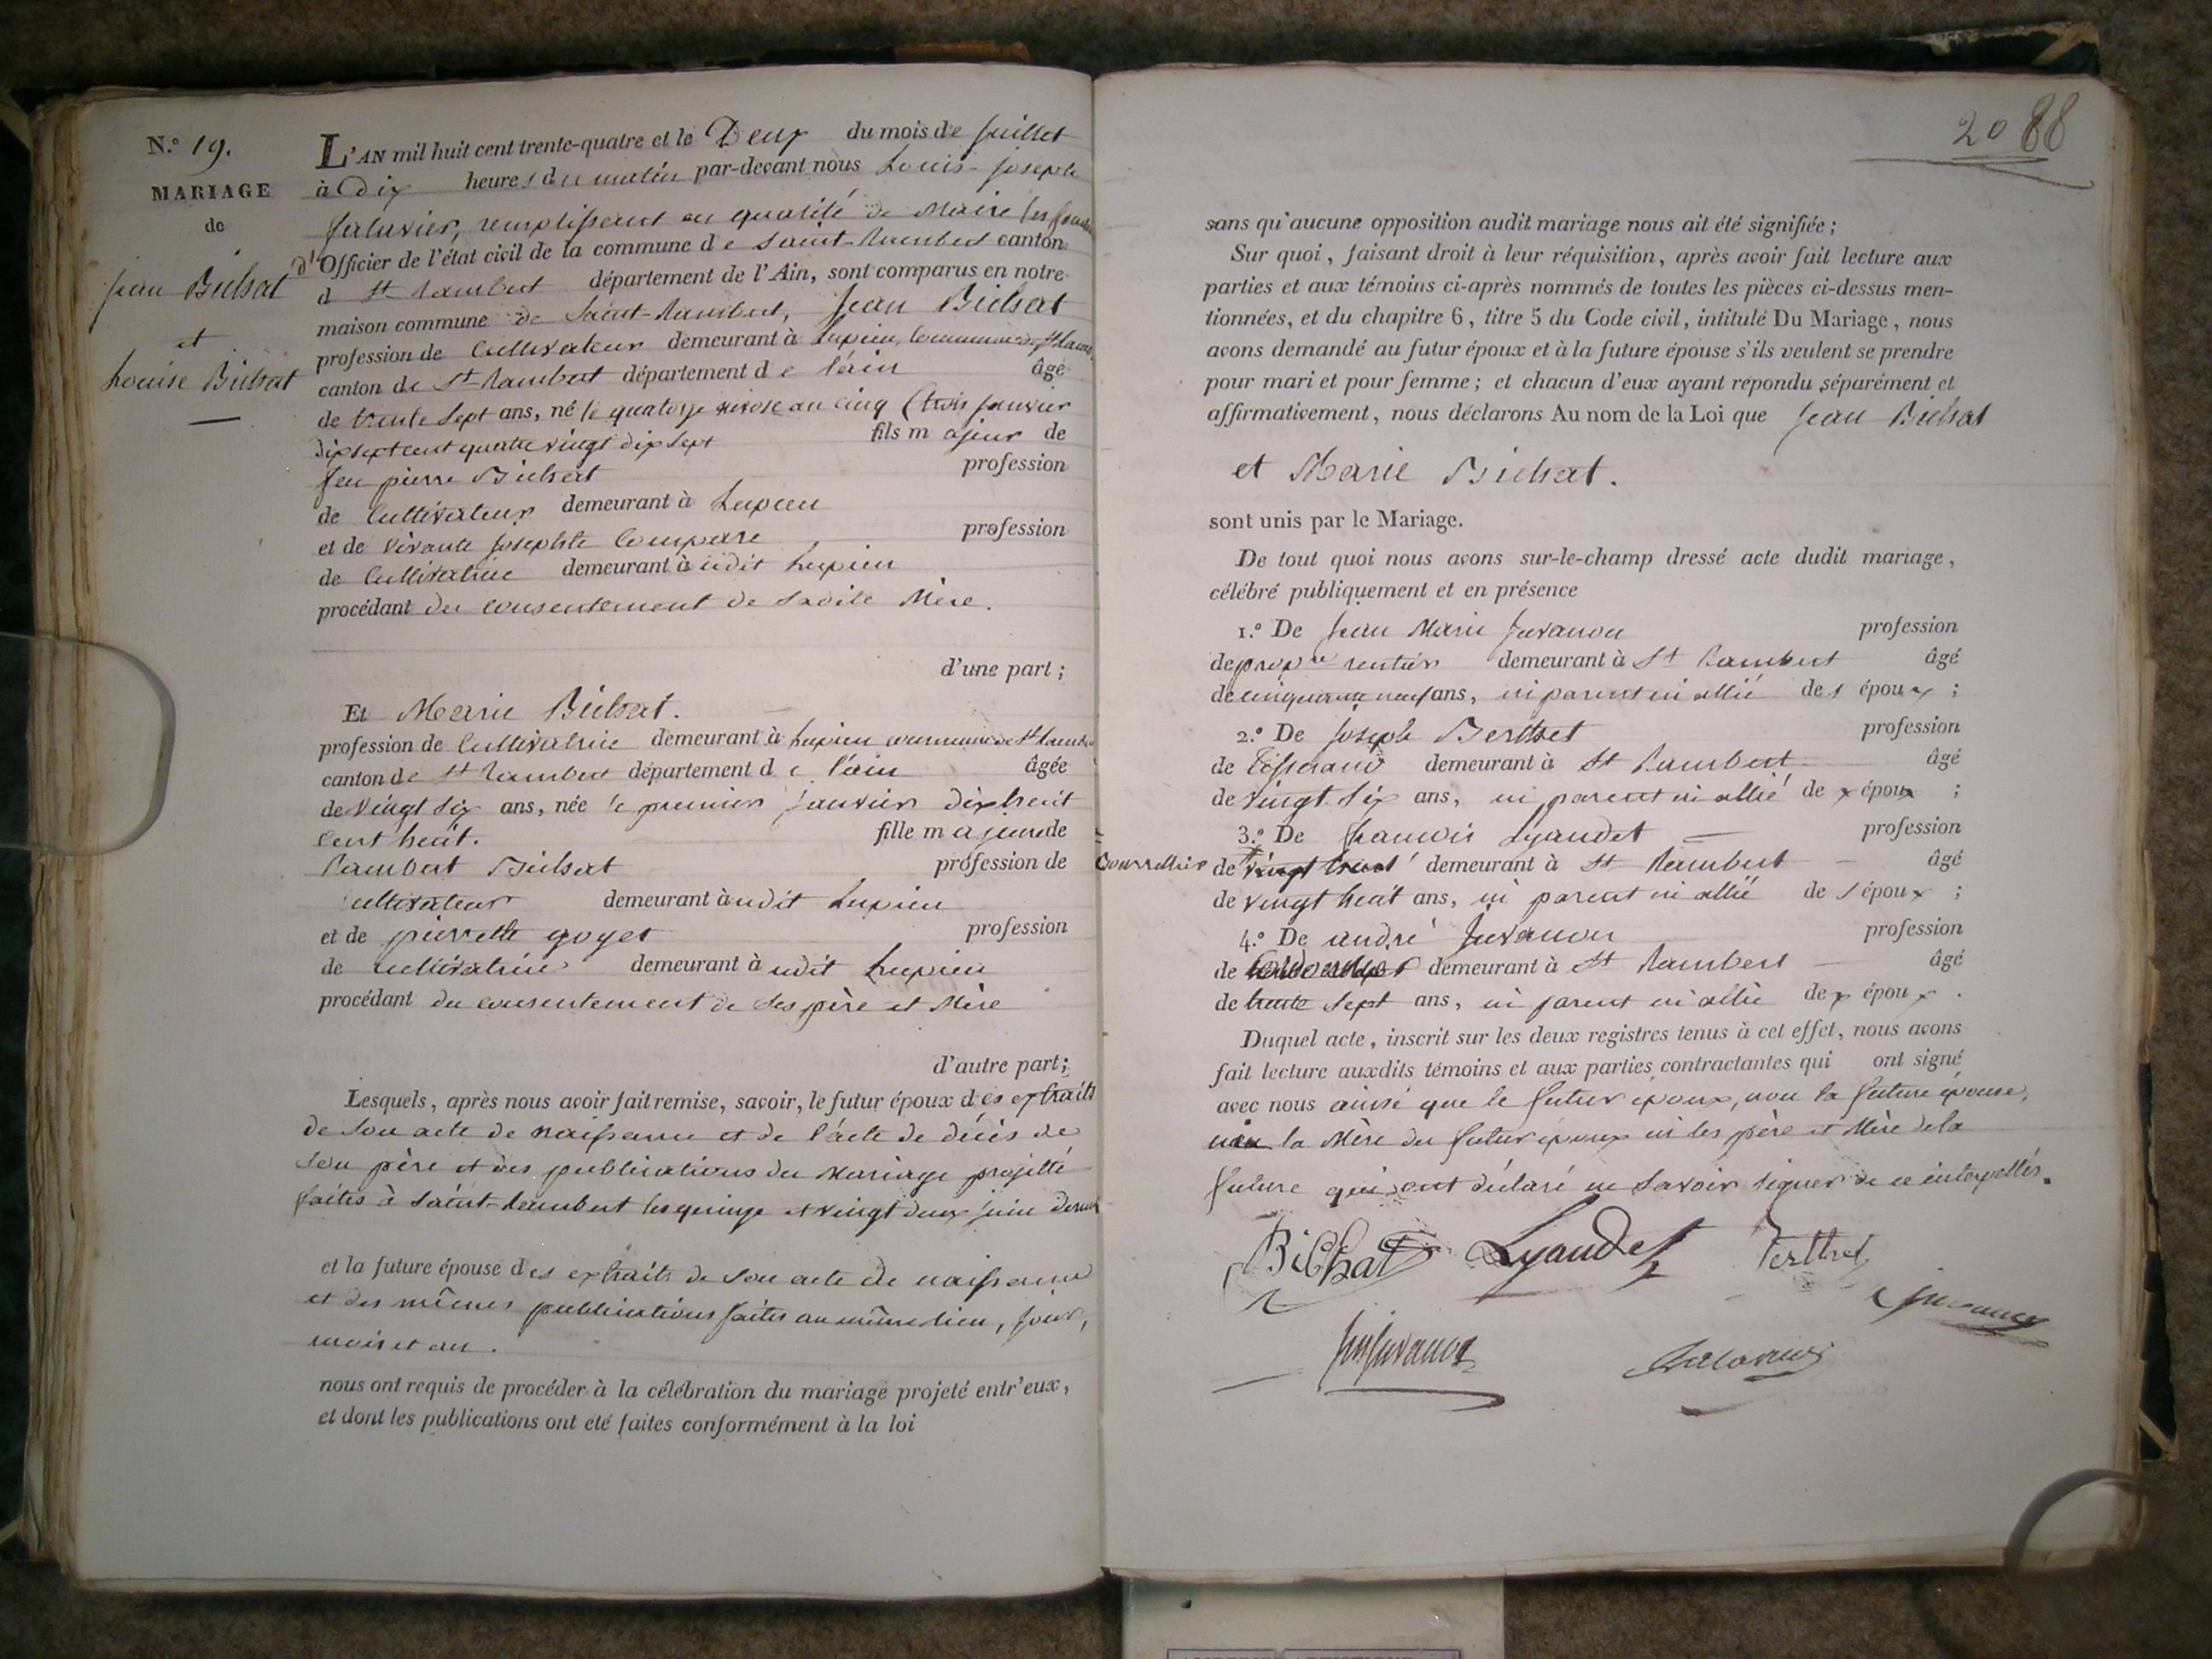 N.o 19.
MARIAGE
de
Jean Bichat
et
Louise Bichat
L'AN mil huit cent trente-quatre et le Deux du mois de Juillet
à Dix heures du matin par-devant nous Louis-Joseph
remplissant en qualité de Maire les
d'Officier de l'état civil de la commune de Saint-Rambert canton
d St Rambert département de l'Ain, sont comparus en notre
maison commune de Saint-Rambert, Jean Bichat
profession de Cultivateur demeurant à Lupieu, commune de St
canton de St Rambert département de l'ain âgé
de trente sept ans, né le quatorze nivose an cinq (trois janvier
dix sept cent quatre vingt dix sept fils majeur de
feu pierre Bichat profession
de Cultivateur demeurant à Lupieu
et de vivante Josephte Compare profession
de Cultivatrice demeurant à udit Lupieu
procédant du consentement de sadite Mère.
d'une part ;
Et Marie Bichat.
profession de Cultivatrice demeurant à Lupieu commune de St
canton de St Rambert département de l'ain âgée
de vingt six ans, née le premier janvier dix huit
cent huit. fille majeure de
Rambert Bichat profession de
cultivateur demeurant à udit Lupieu
et de pierrette goyet profession
de cultivatrice demeurant à udit Lupieu
procédant du consentement de ses père et Mère
d'autre part ;
Lesquels, après nous avoir fait remise, savoir, le futur époux des extraits
de son acte de naissance et de l'acte de décès de
son père et des publications du Mariage projetté
faites à Saint-Rambert les quinze et vingt deux juin dernier
et la future épouse des extraits de son acte de naissance
et des mêmes publications faites au même lieu, jour,
mois et an.
nous ont requis de procéder à la célébration du mariage projeté entr'eux,
et dont les publications ont été faites conformément à la loi
20 88
sans qu'aucune opposition audit mariage nous ait été signifiée ;
Sur quoi, faisant droit à leur réquisition, après avoir fait lecture aux
parties et aux témoins ci-après nommés de toutes les pièces ci-dessus men-
tionnées, et du chapitre 6, titre 5 du Code civil, intitulé Du Mariage, nous
avons demandé au futur époux et à la future épouse s'ils veulent se prendre
pour mari et pour femme ; et chacun d'eux ayant répondu séparément et
affirmativement, nous déclarons Au nom de la Loi que Jean Bichat
et Marie Bichat.
sont unis par le Mariage.
De tout quoi nous avons sur-le-champ dressé acte dudit mariage,
célébré publiquement et en présence
1.o De Jean Marie Juvanon profession
de propre rentier demeurant à St Rambert âgé
de cinquante neuf ans, ni parent ni allié des époux ;
2.o De Joseph Berthet profession
de Tisserand demeurant à St Rambert âgé
de vingt six ans, ni parent ni allié de x époux ;
3.o De francois Lyaudet profession
Bourrellier de vingt huit demeurant à St Rambert âgé
de vingt huit ans, ni parent ni allié des époux ;
4.o De andré Juvanon profession
de demeurant à St Rambert âgé
de trente sept ans, ni parent ni allié de x époux.
Duquel acte, inscrit sur les deux registres tenus à cet effet, nous avons
fait lecture auxdits témoins et aux parties contractantes qui ont signé
avec nous ainsi que le futur époux, non la future épouse,
la Mère du futur époux ni les père et Mère dela
future qui ont déclaré ne savoir signer de ce interpellés.
BiChat Lyaudet Berthet
Juvanon